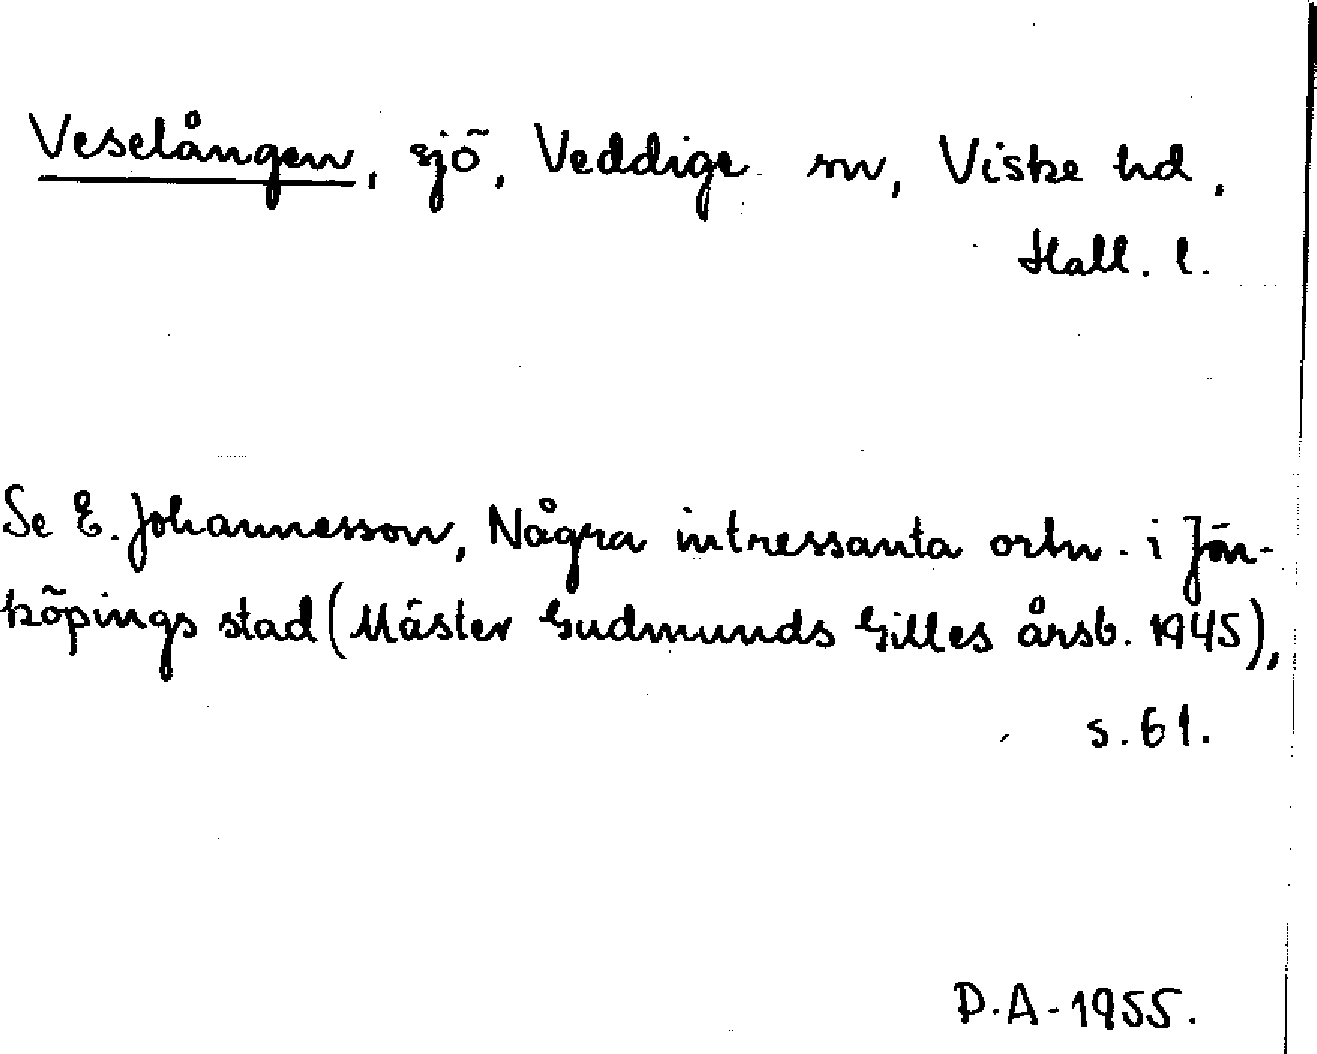 Veselången, sjö, Veddige sn, Viske hd,
Hall. l.
Se E. Johannesson, Några intressanta ortn. i Jön-
köpings stad (Mäster Gudmunds Gilles årsb. 1945),
s. 61.
P.A. 1955.